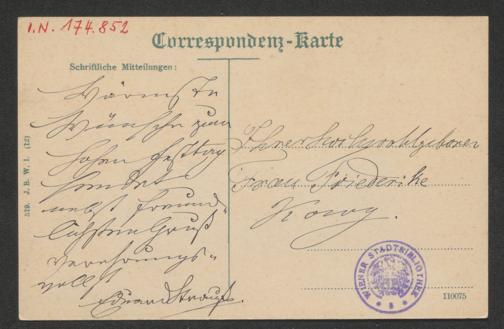 I.N. 174.852
Correspondenz-Karte
Schriftliche Mitteilungen:
Wärmste
Wünsche zum
hohen Festtag
sendet
nebst freund-
lichstem Gruß
verehrungs-
vollst
Eduard Strauß.
Ihrer Hochwohlgeboren
Frau Friederike
579. J. B. W. I. (12)
WIENER STADTBIBLIOTHEK
110075